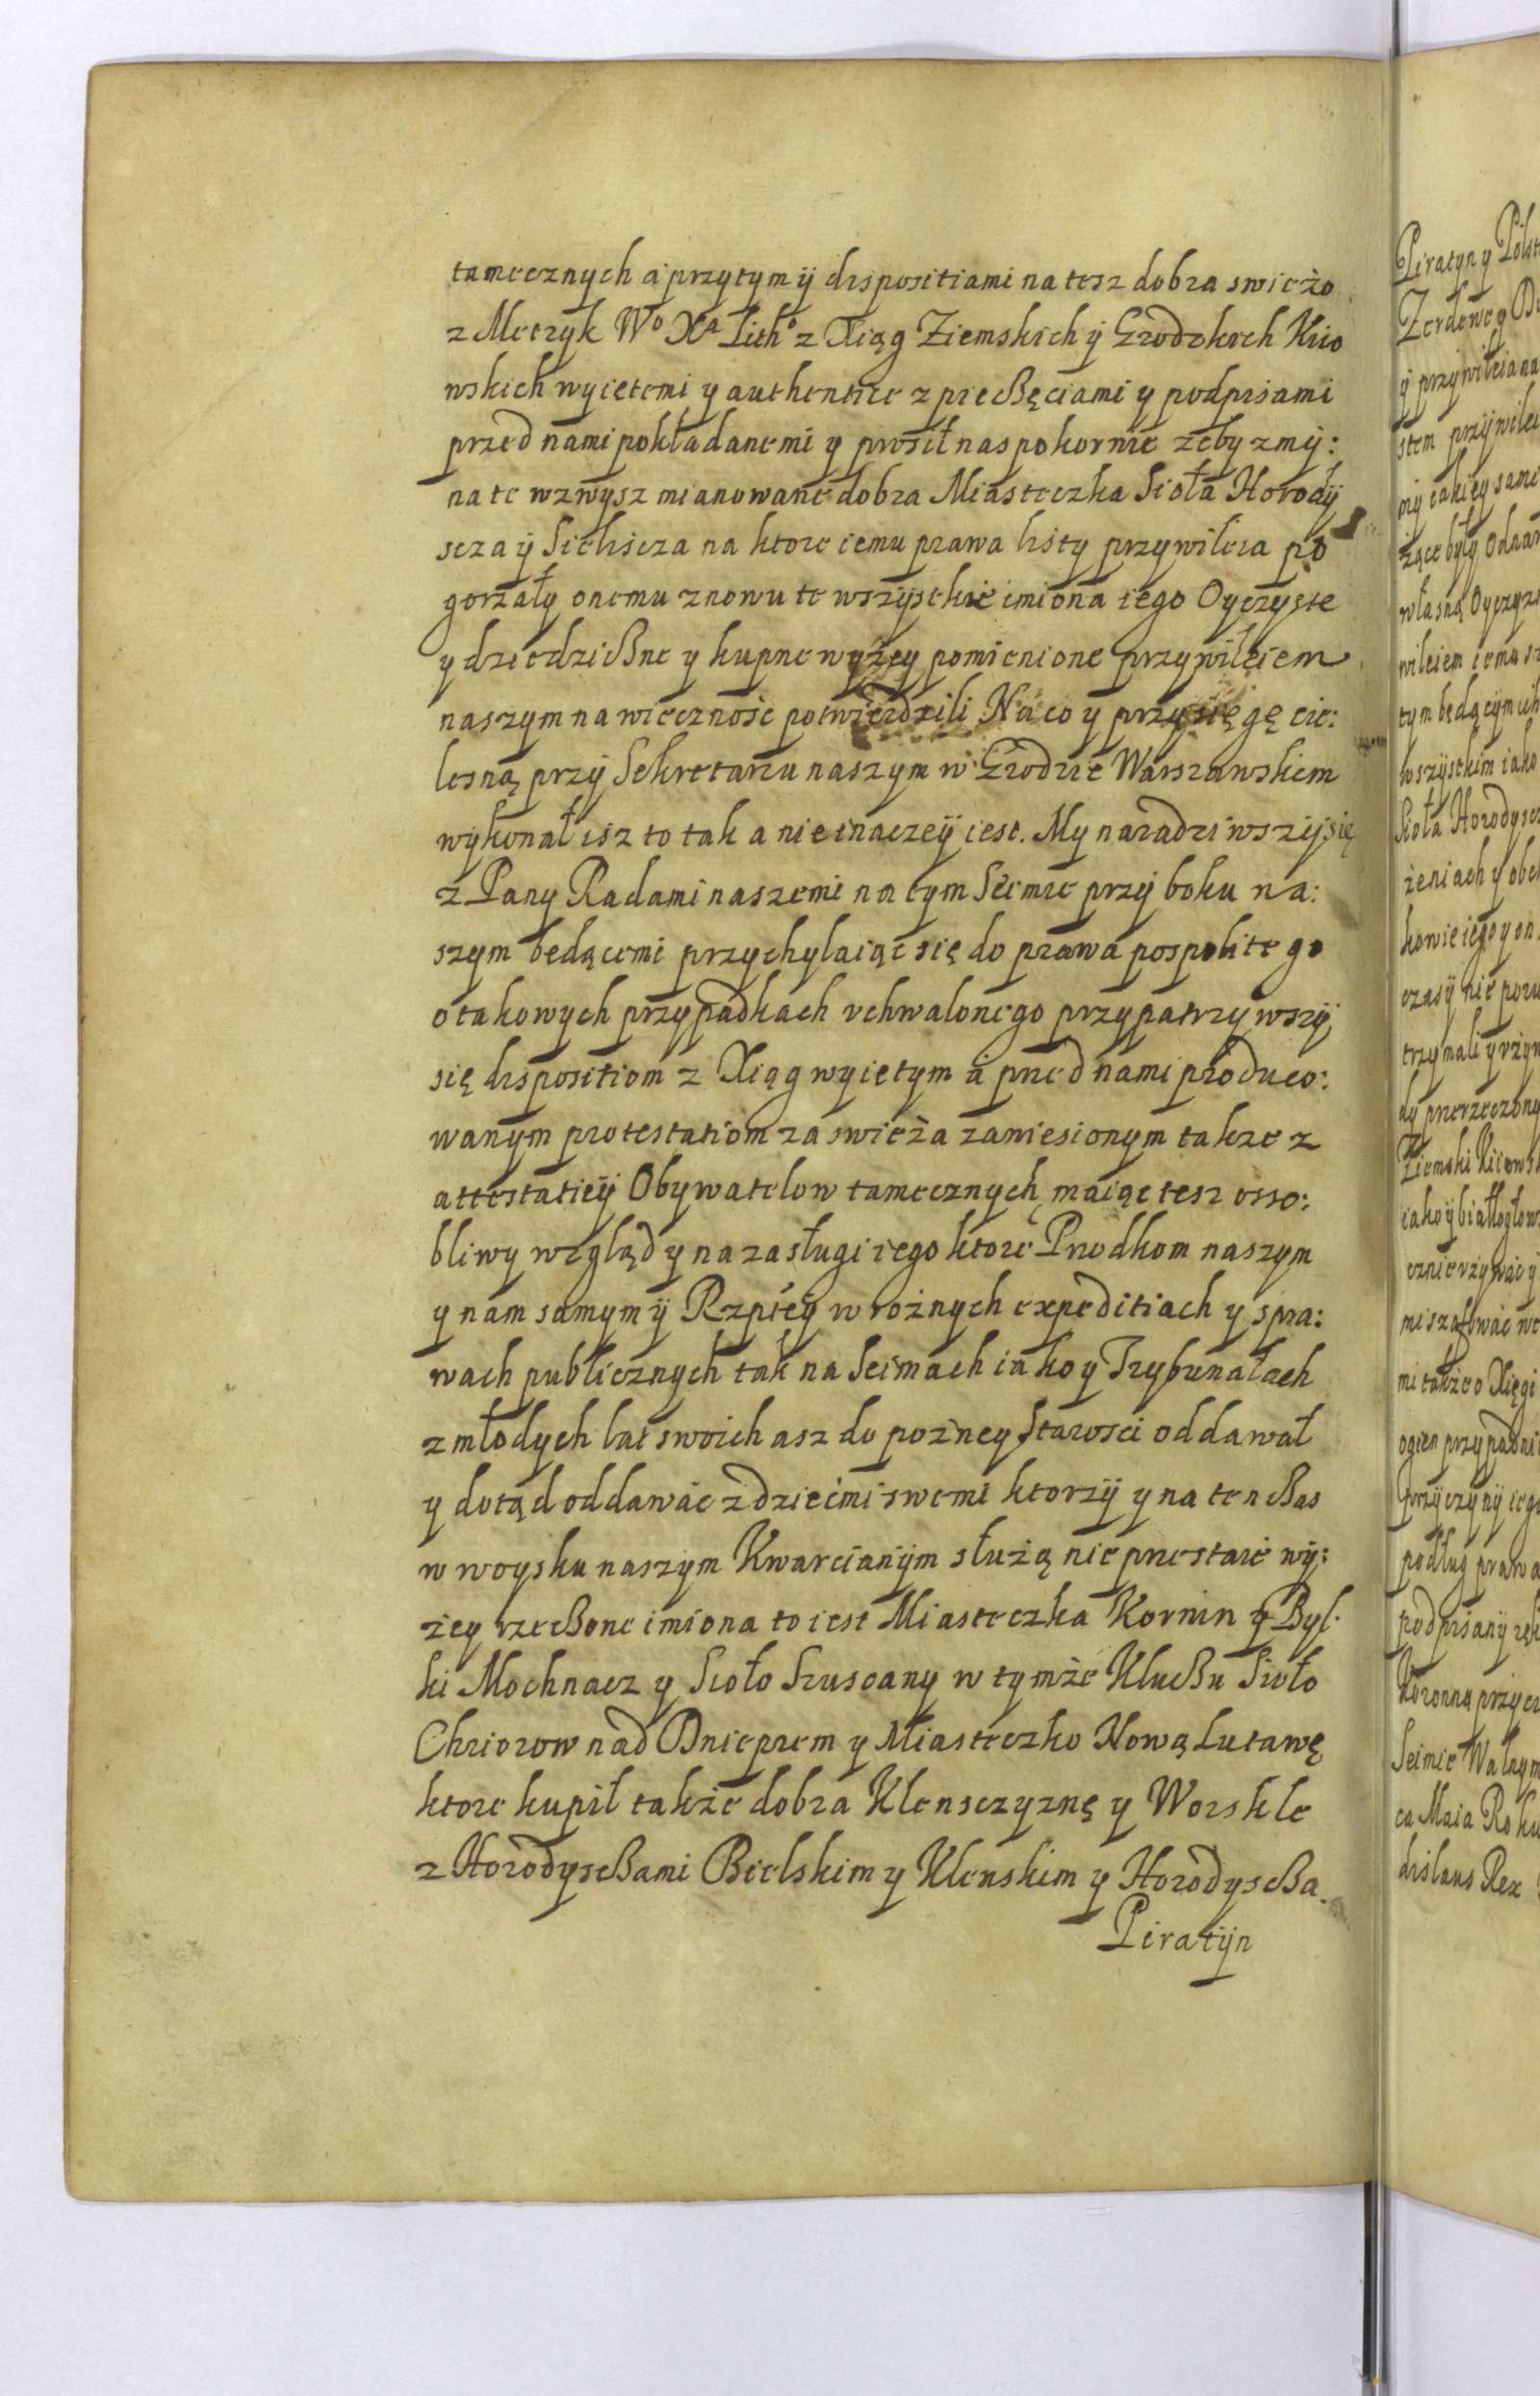 tamecznych a przytym ÿ dispositiami na tesz dobra swieżo
z Metryk Wº Xª Lithº z Xiąg Ziemskich ÿ Grodzkich Kiio
wskich wyiętemi y authentice z pieczęciami y podpisami
przed nami pokładanemi y prosił nas pokornie żeby zmÿ:
na te wzwysz mianowane dobra Miasteczka Sioła Horodÿ
scza ÿ Sieliscza na ktore iemu prawa listy przywileia po
gorzały onemu znowu te wszÿstkie imiona iego Oyczyste
y dziedziczne y kupne wyżey pomienione przywileiem
naszym na wieczność potwierdzili Na co y przysięgę cie:
lesną przÿ Sekretarzu naszym w Grodzie Warszawskiem
wykonał isz to tak a nie inaczeÿ iest. My naradziwszÿ się
z Pany Radami naszemi na tym Seimie przÿ boku na:
szym będącemi przychylaiąc się do prawa pospolitego
o takowych przypadkach vchwalonego przypatrzywszÿ
się dispositiom z Xiąg wyiętym a przed nami produco:
wanym protestatiom za swieża zaniesionym także z
attestatieÿ Obywatelow tamecznych, maiąc tesz osso:
bliwy wzgląd y na zasługi iego ktore Przodkom naszym
y nam samym ÿ Rzpteÿ w rożnych expeditiach y spra:
wach publicznych tak na Seimach iako y Trybunałach
z młodych lat swoich asz do pozney starosci oddawał
y dotąd oddawać z dziećmi swemi ktorzÿ y na ten czas
w woysku naszym Kwarcianÿm służą nie przestaie wÿ:
żey rzeczone imiona to iest Miasteczka Kornin y Byl:
ki Mochnacz y Sioło Szuscany w tymże Kluczu Sioło
Chriorow nad Dnieprem y Miasteczko Nową Lutawę
ktore kupił także dobra Klensczyznę y Worskle
z Horodysczami Bielskim y Klenskim y Horodyscza.
Piratÿn